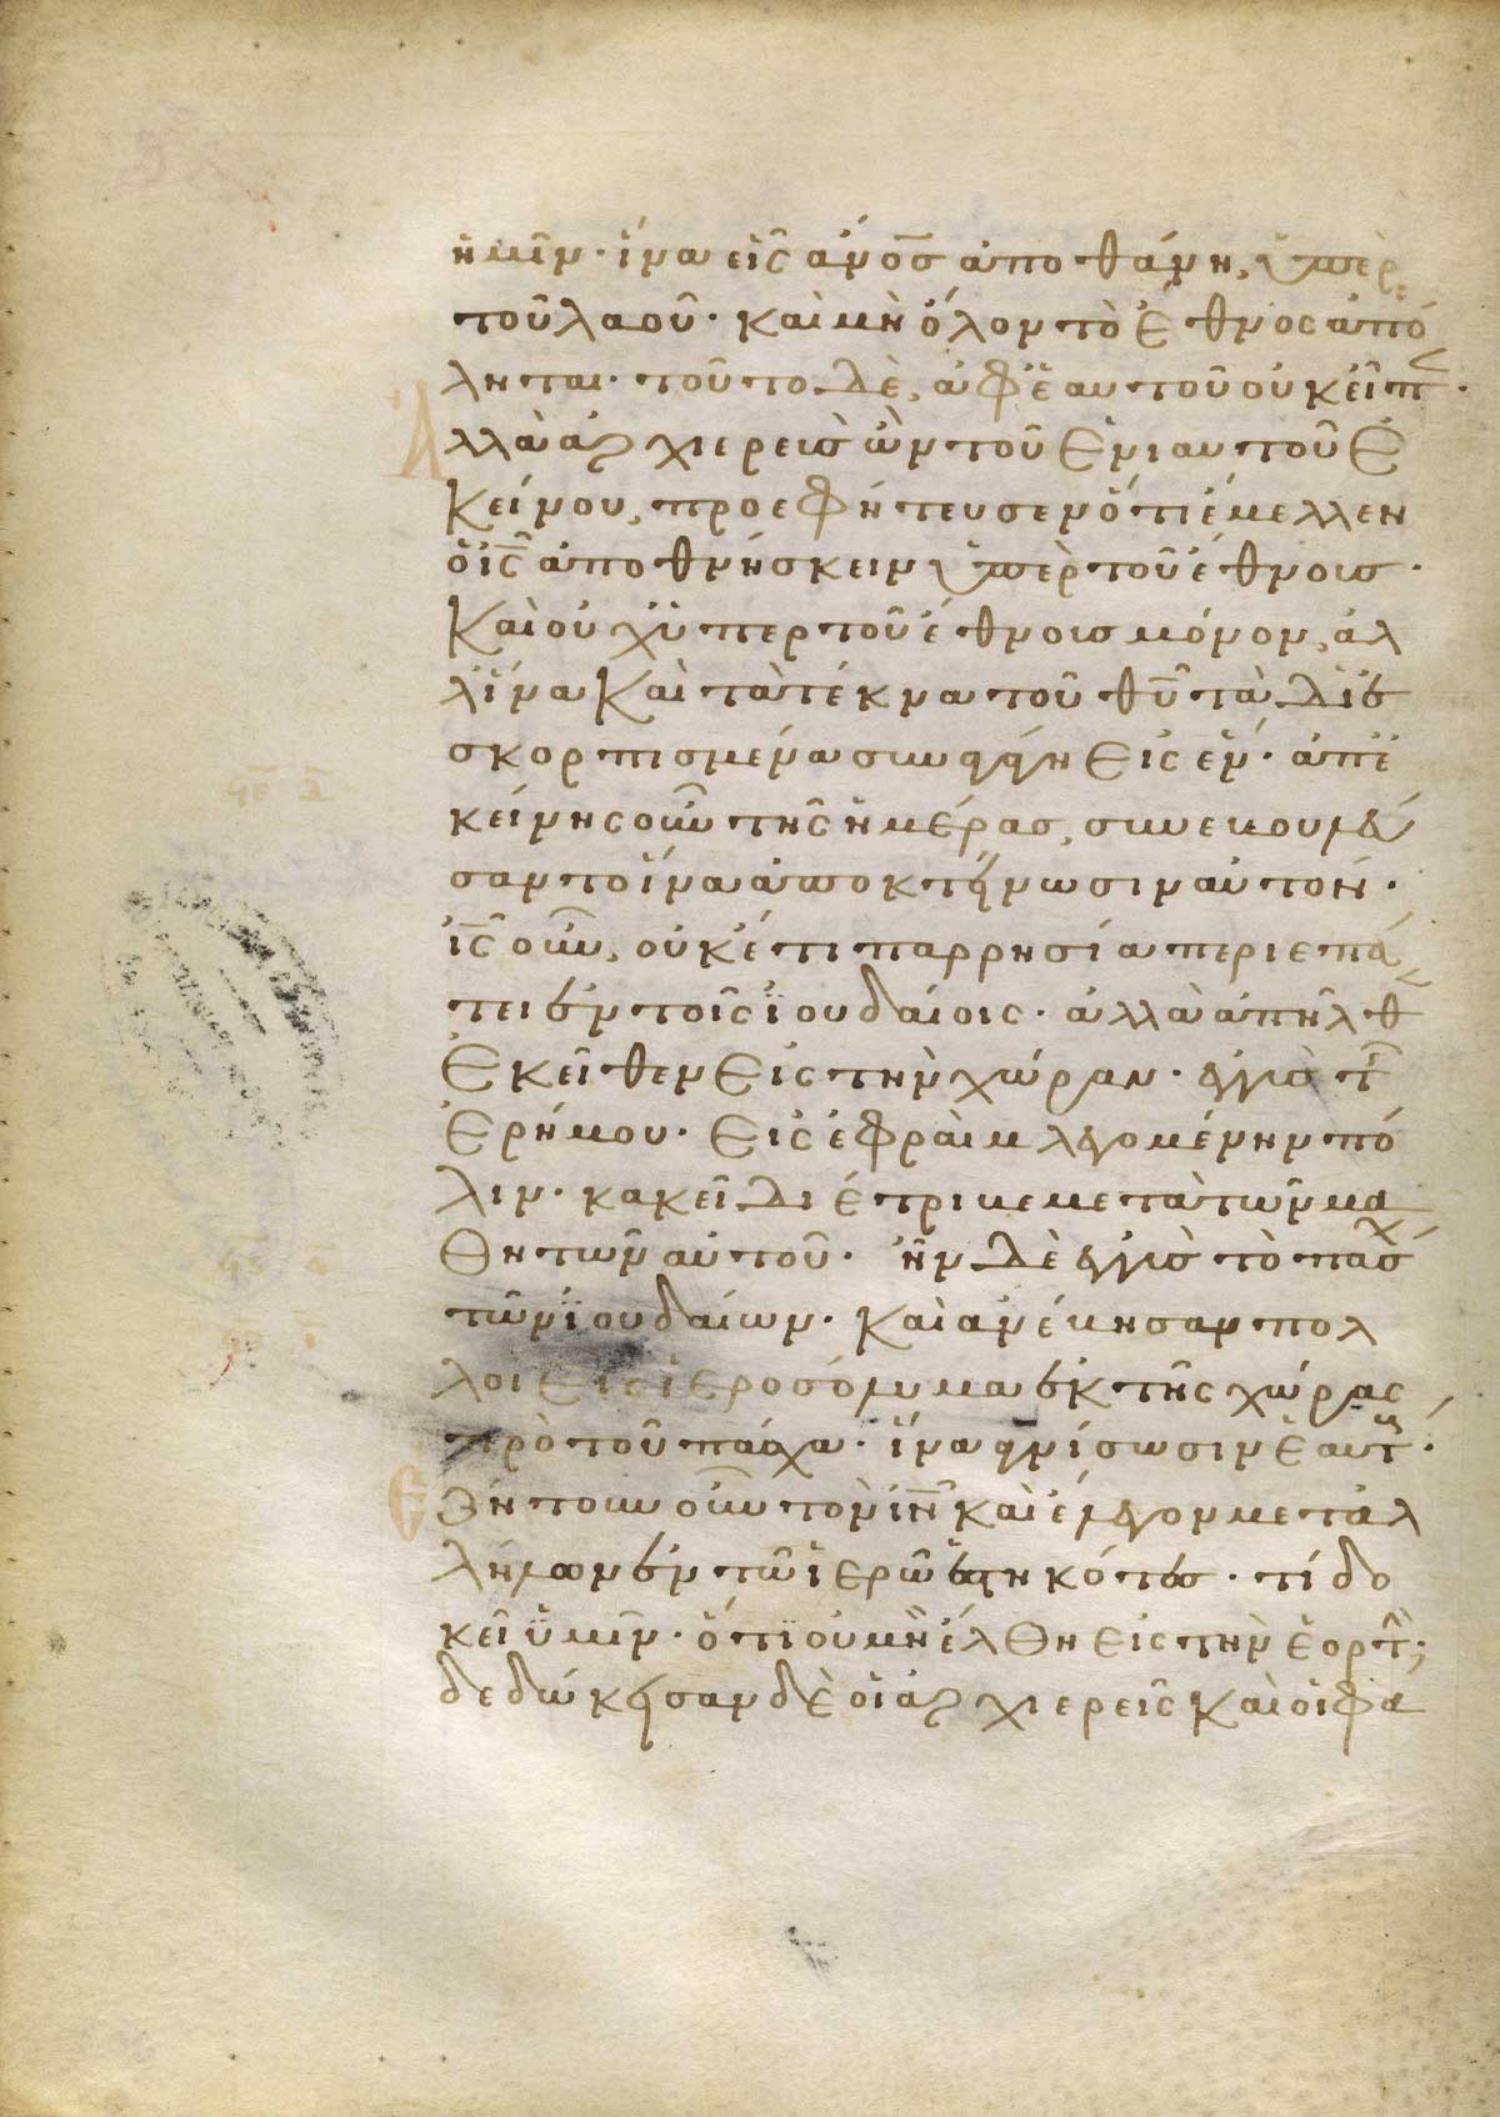 ἡμῖν· ἵνα εἷς ἄνος ἀποθάνη, ὑπὲρ
τοῦ λαοῦ· καὶ μὴ ὅλον τὸ ἔθνος ἀπό
ληται· τοῦτο δὲ, ἀφ ἑαυτοῦ οὐκ εἶπ·
Ἀλλὰ ἀρχιερεὺς ὢν τοῦ ἐνιαυτοῦ ἐ
κείνου, προεφήτευσεν ὅτι ἔμελλεν
ὁ ις ἀποθνήσκειν ὑπὲρ τοῦ ἔθνους·
Καὶ οὐχ ὑπερ τοῦ ἔθνους μόνον, ἀλ
λ ἵνα καὶ τὰ τέκνα τοῦ θυ τὰ διε
σκορπισμένα συναγάγη εἰς ἕν· ἀπ ἐ
κείνης οὖν τῆς ἡμέρας, συνεβουλεύ
σαντο ἵνα ἀποκτείνωσιν αὐτόν·
ις οὖν, οὐκ έτι παρρησία περιεπά
τει ἐν τοῖς ἰουδαίοις· ἀλλὰ ἀπῆλθ
ἐκεῖθεν εἰς τὴν χώραν· ἐγγὺς τ
ἐρήμου· εἰς ἐφραὶμ λεγομένην πό
λιν· κακεῖ διέτριβε μετὰ τῶν μα
θητῶν αὐτοῦ· ἦν δὲ ἐγγὺς τὸ πάσχ
τῶν ἰουδαίων· καὶ ἀνέβησαν πολ
λοι εἰς ἱεροσόλυμα ἐκ τῆς χώρας
πρὸ τοῦ πάσχα· ἵνα ἁγνίσωσιν ἑαυτ·
Ἐζήτουν οὖν τὸν ιν καὶ ἔλεγον μετ ἀλ
λήλων ἐν τῶ ἱερῶ ἑστηκότες· τί δο
κεῖ ὑμῖν· ὅτι οὐ μὴ ἔλθη εἰς τὴν ἑορτ;
δεδώκεισαν δὲ οἱ ἀρχιερεῖς καὶ οἱ φα